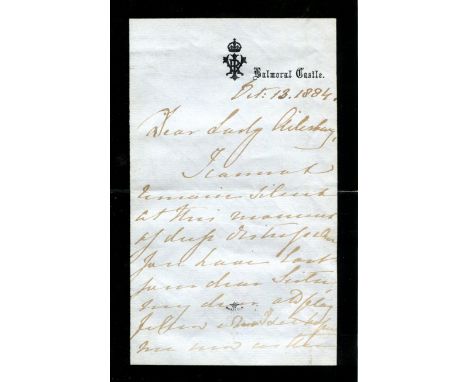 Balmoral Castle.
Oct: 13. 1884.
Dear Lady Ailesbury,
I cannot
remain silent
at this moment
of deep distress when
You have lost
your dear Sister
my dear old play
fellow
me now